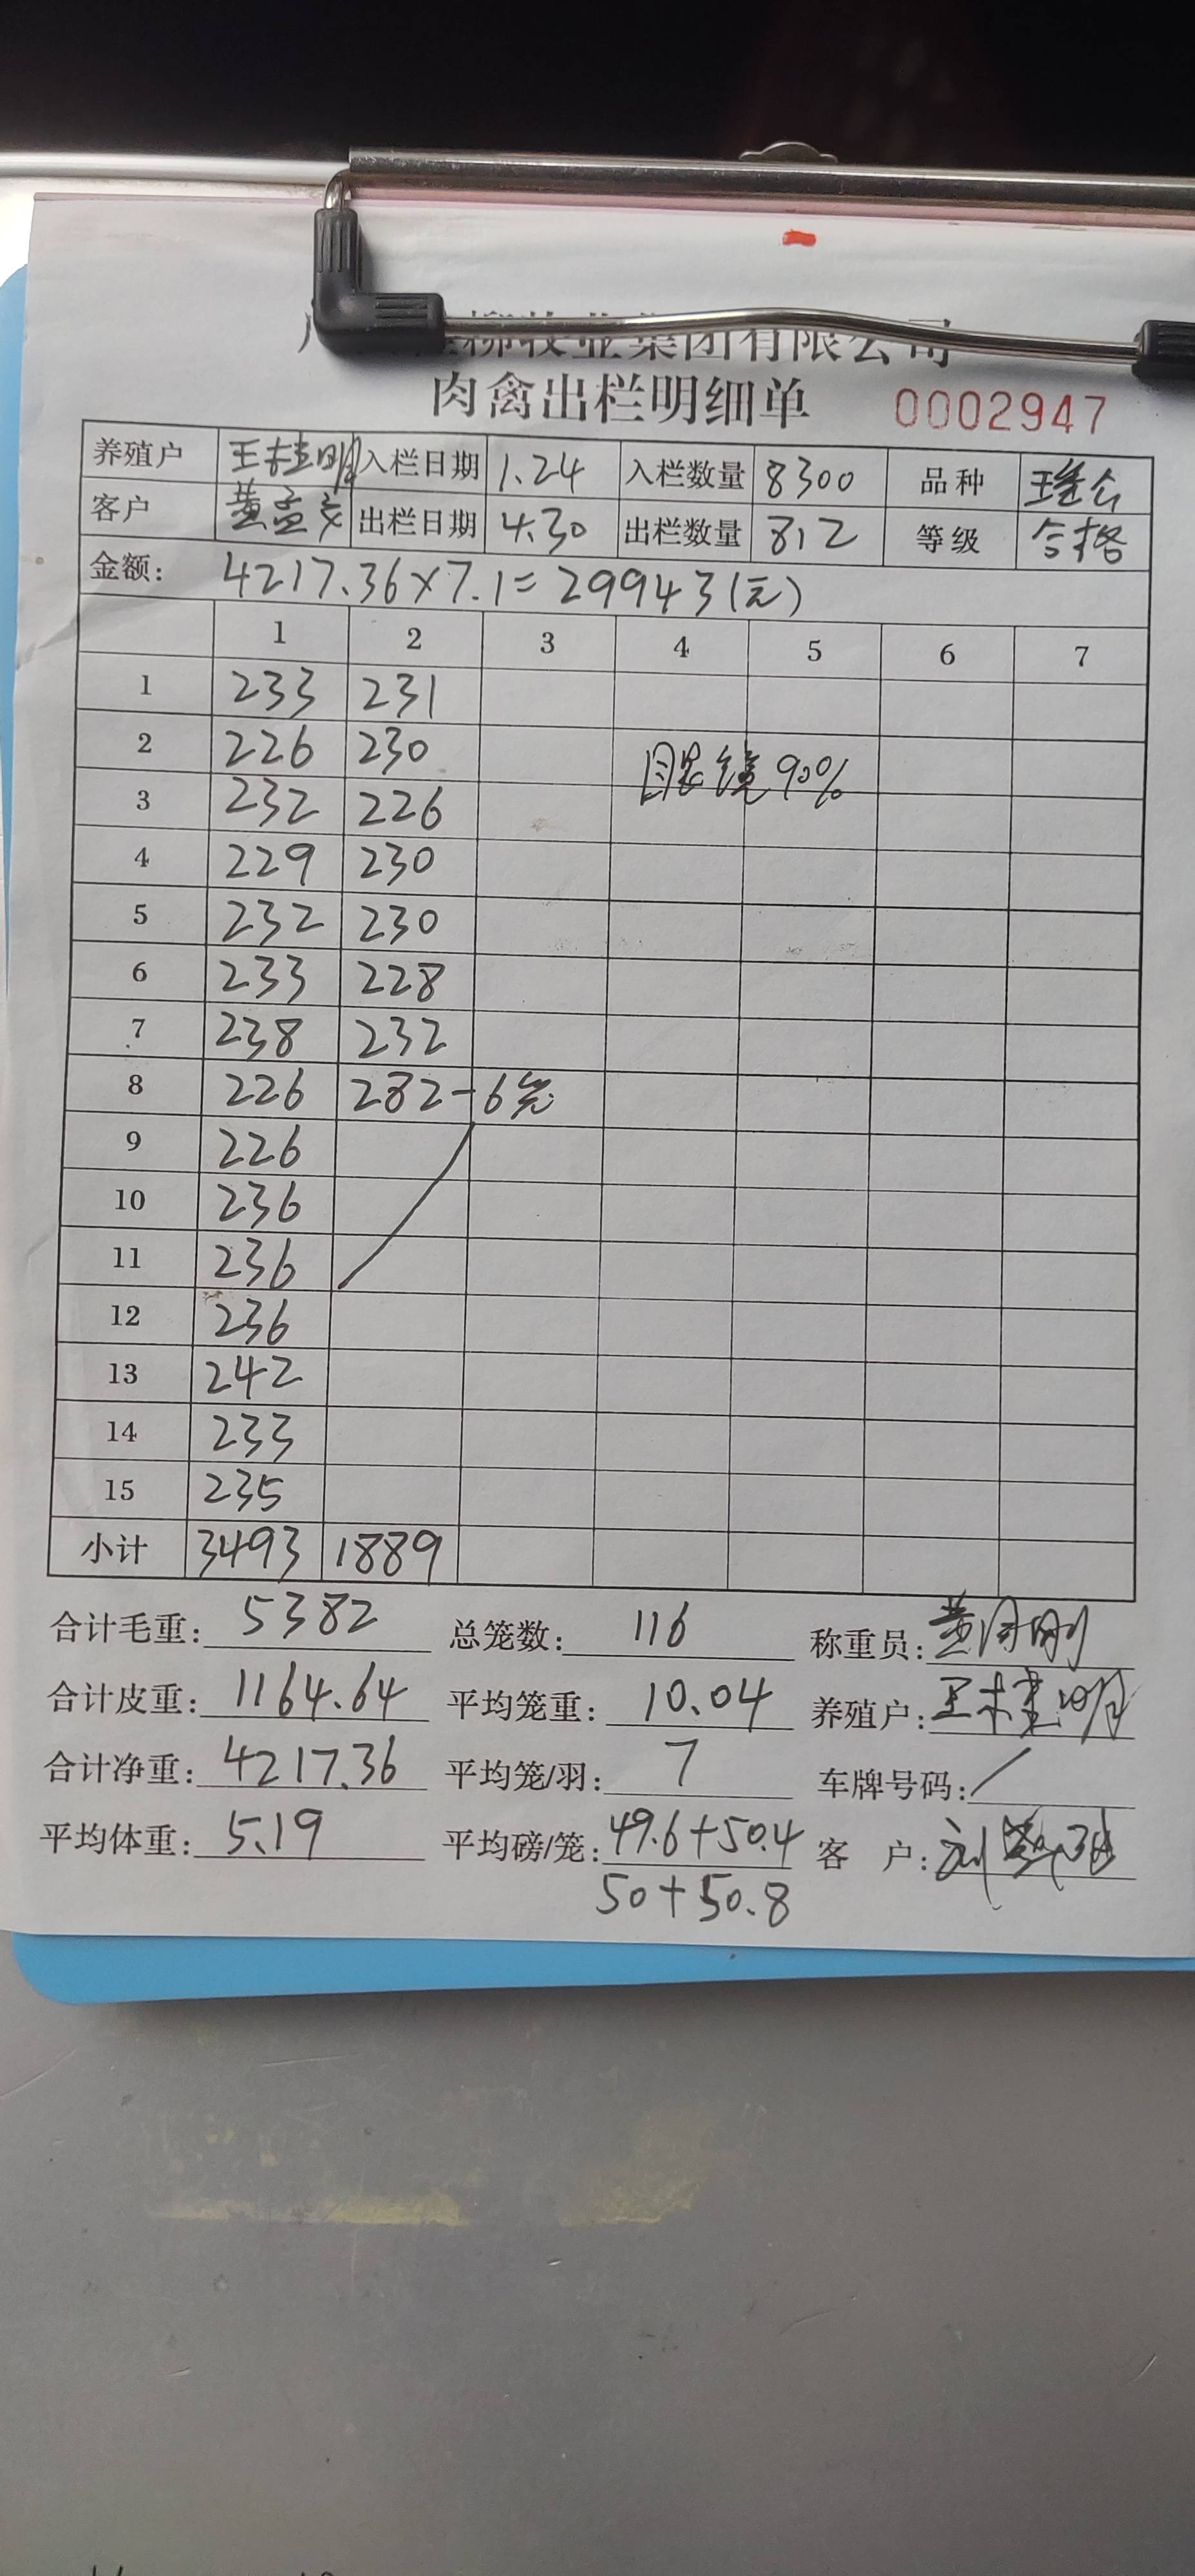 柳牧业集团有限公司
肉禽出栏明细单 0002947
养殖户 王桂明 入栏日期 1.24 入栏数量 8300 品种 瑶公
客户 黄孟 出栏日期 4.30 出栏数量 812 等级 合格
金额: 4217.36×7.1=29943(元)
1 2 3 4 5 6 7
1 233 231
2 226 230 眼镜90%
3 232 226
4 229 230
5 232 230
6 233 228
7 238 232
8 226 282-6笼
9 226
10 236
11 236
12 236
13 242
14 233
15 235
小计 3493 1889
合计毛重: 5382 总笼数: 116 称重员:
合计皮重: 1164.64 平均笼重: 10.04 养殖户: 王桂明
合计净重: 4217.36 平均笼/羽: 7 车牌号码: /
平均体重: 5.19 平均磅/笼: 49.6+50.4 客 户:
50+50.8